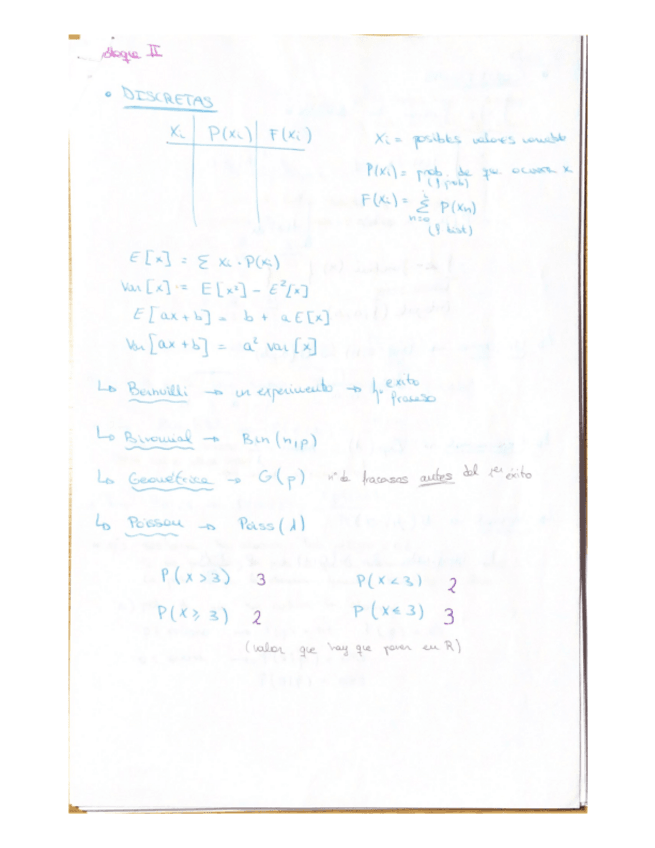 Bloque II
• DISCRETAS
Xi P(xi) F(xi)
Xi = posibles valores variable
P(xi) = prob. de que ocurra x
(f prob)
F(xi) = Σ P(xn)
n=0
(f dist)
E[x] = Σ xi · P(xi)
Var[x] = E[x²] - E²[x]
E[ax+b] = b + a E[x]
Var[ax+b] = a² Var[x]
↳ Bernuilli → un experimento → éxito
fracaso
↳ Binomial → Bin(n,p)
↳ Geométrica → G(p) nº de fracasos antes del 1er éxito
↳ Poisson → Poiss(λ)
P(x>3) 3 P(x<3) 2
P(x≥3) 2 P(x≤3) 3
(valor que hay que poner en R)